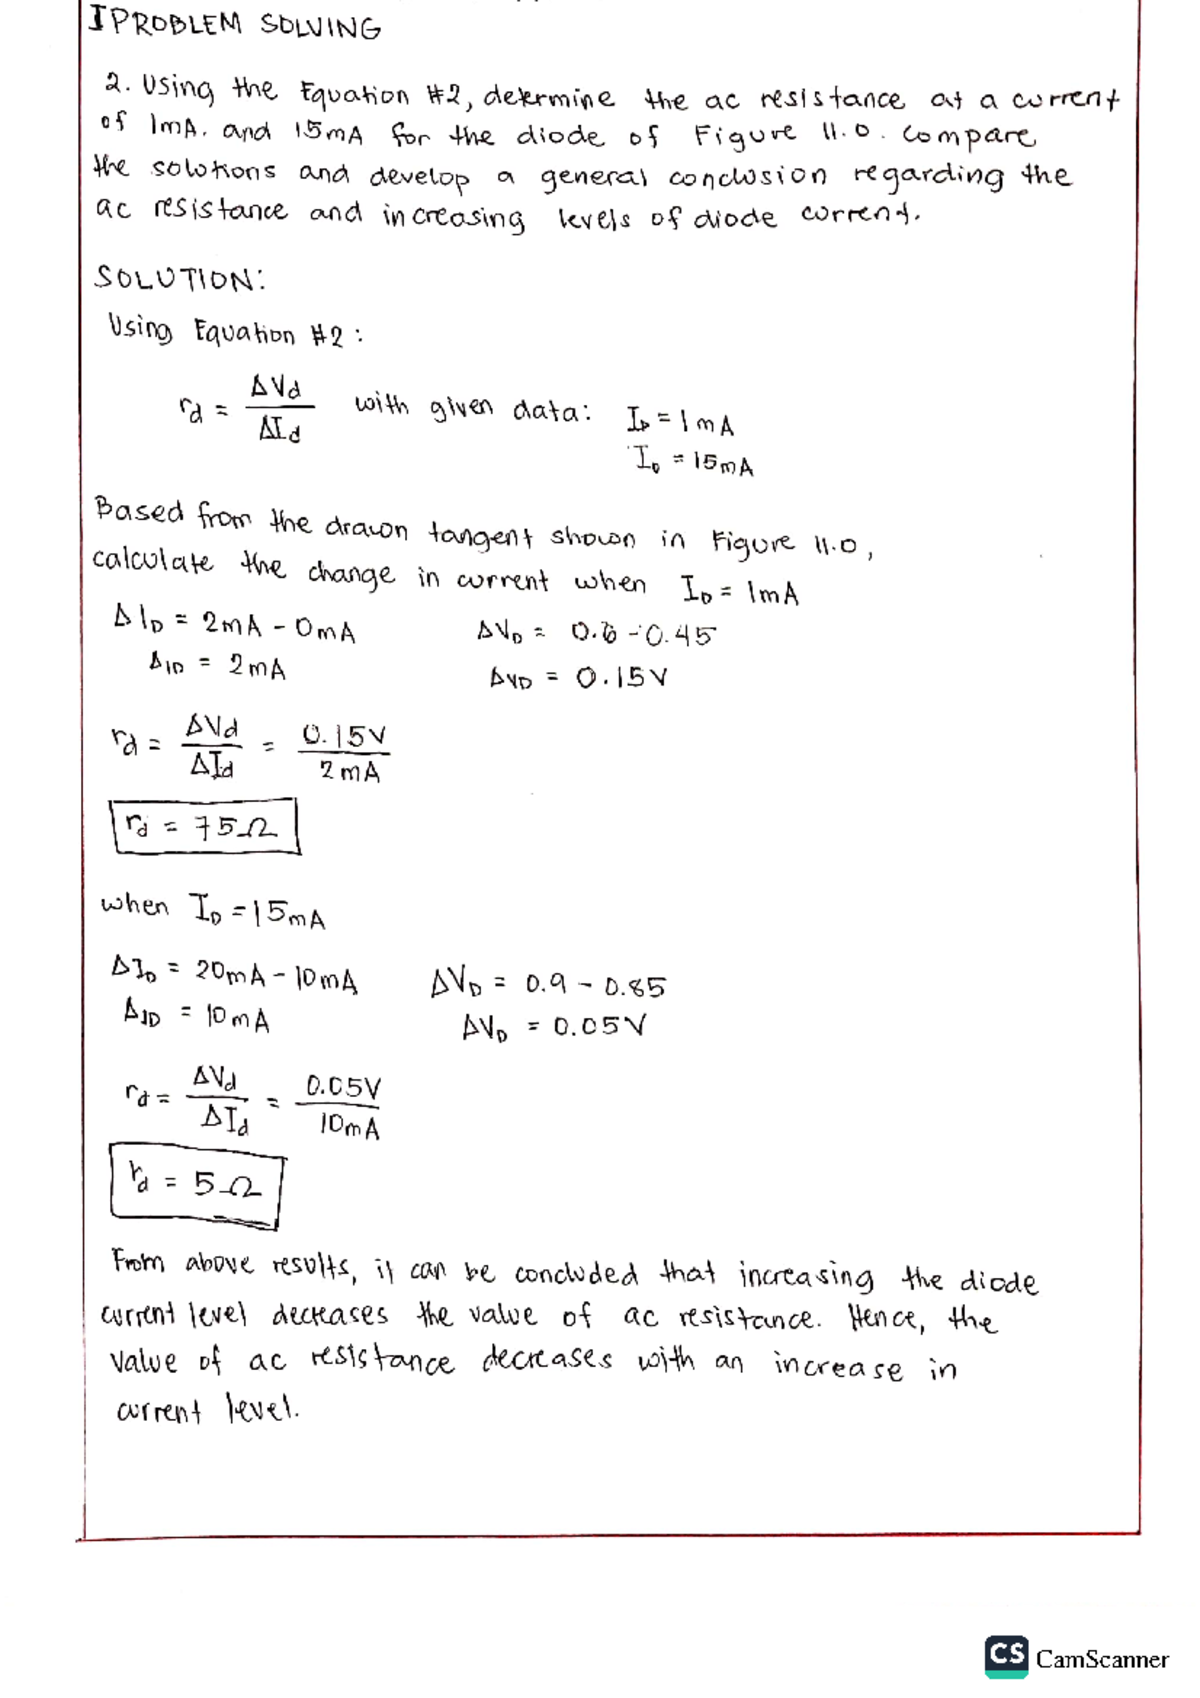 I PROBLEM SOLVING
2. Using the Equation #2, determine the ac resistance at a current
of 1mA. and 15mA for the diode of Figure 11.0. compare
the solutions and develop a general conclusion regarding the
ac resistance and increasing levels of diode current.
SOLUTION:
Using Equation #2:
rd = ΔVd / ΔId with given data: ID = 1mA
ID = 15mA
Based from the drawn tangent shown in Figure 11.0,
calculate the change in current when ID = 1mA
ΔID = 2mA - 0mA ΔVD = 0.6 - 0.45
ΔID = 2mA ΔVD = 0.15V
rd = ΔVd / ΔId = 0.15V / 2mA
rd = 75Ω
when ID = 15mA
ΔID = 20mA - 10mA ΔVD = 0.9 - 0.85
ΔID = 10mA ΔVD = 0.05V
rd = ΔVd / ΔId = 0.05V / 10mA
rd = 5Ω
From above results, it can be concluded that increasing the diode
current level decreases the value of ac resistance. Hence, the
value of ac resistance decreases with an increase in
current level.
CS CamScanner